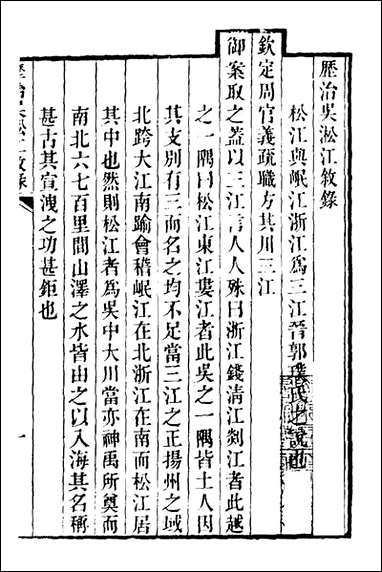 歷治吳淞江敘錄
松江與岷江浙江爲三江晉郭璞氏之說也
欽定周官義疏職方其川三江
御案取之蓋以三江言人人殊曰浙江錢清江剡江者此越
之一隅曰松江東江婁江者此吳之一隅皆土人因
其支別有三而名之均不足當三江之正揚州之域
北跨大江南踰會稽岷江在北浙江在南而松江居
其中也然則松江者爲吳中大川當亦神禹所奠而
南北六七百里間山澤之水皆由之以入海其名稱
甚古其宣洩之功甚鉅也